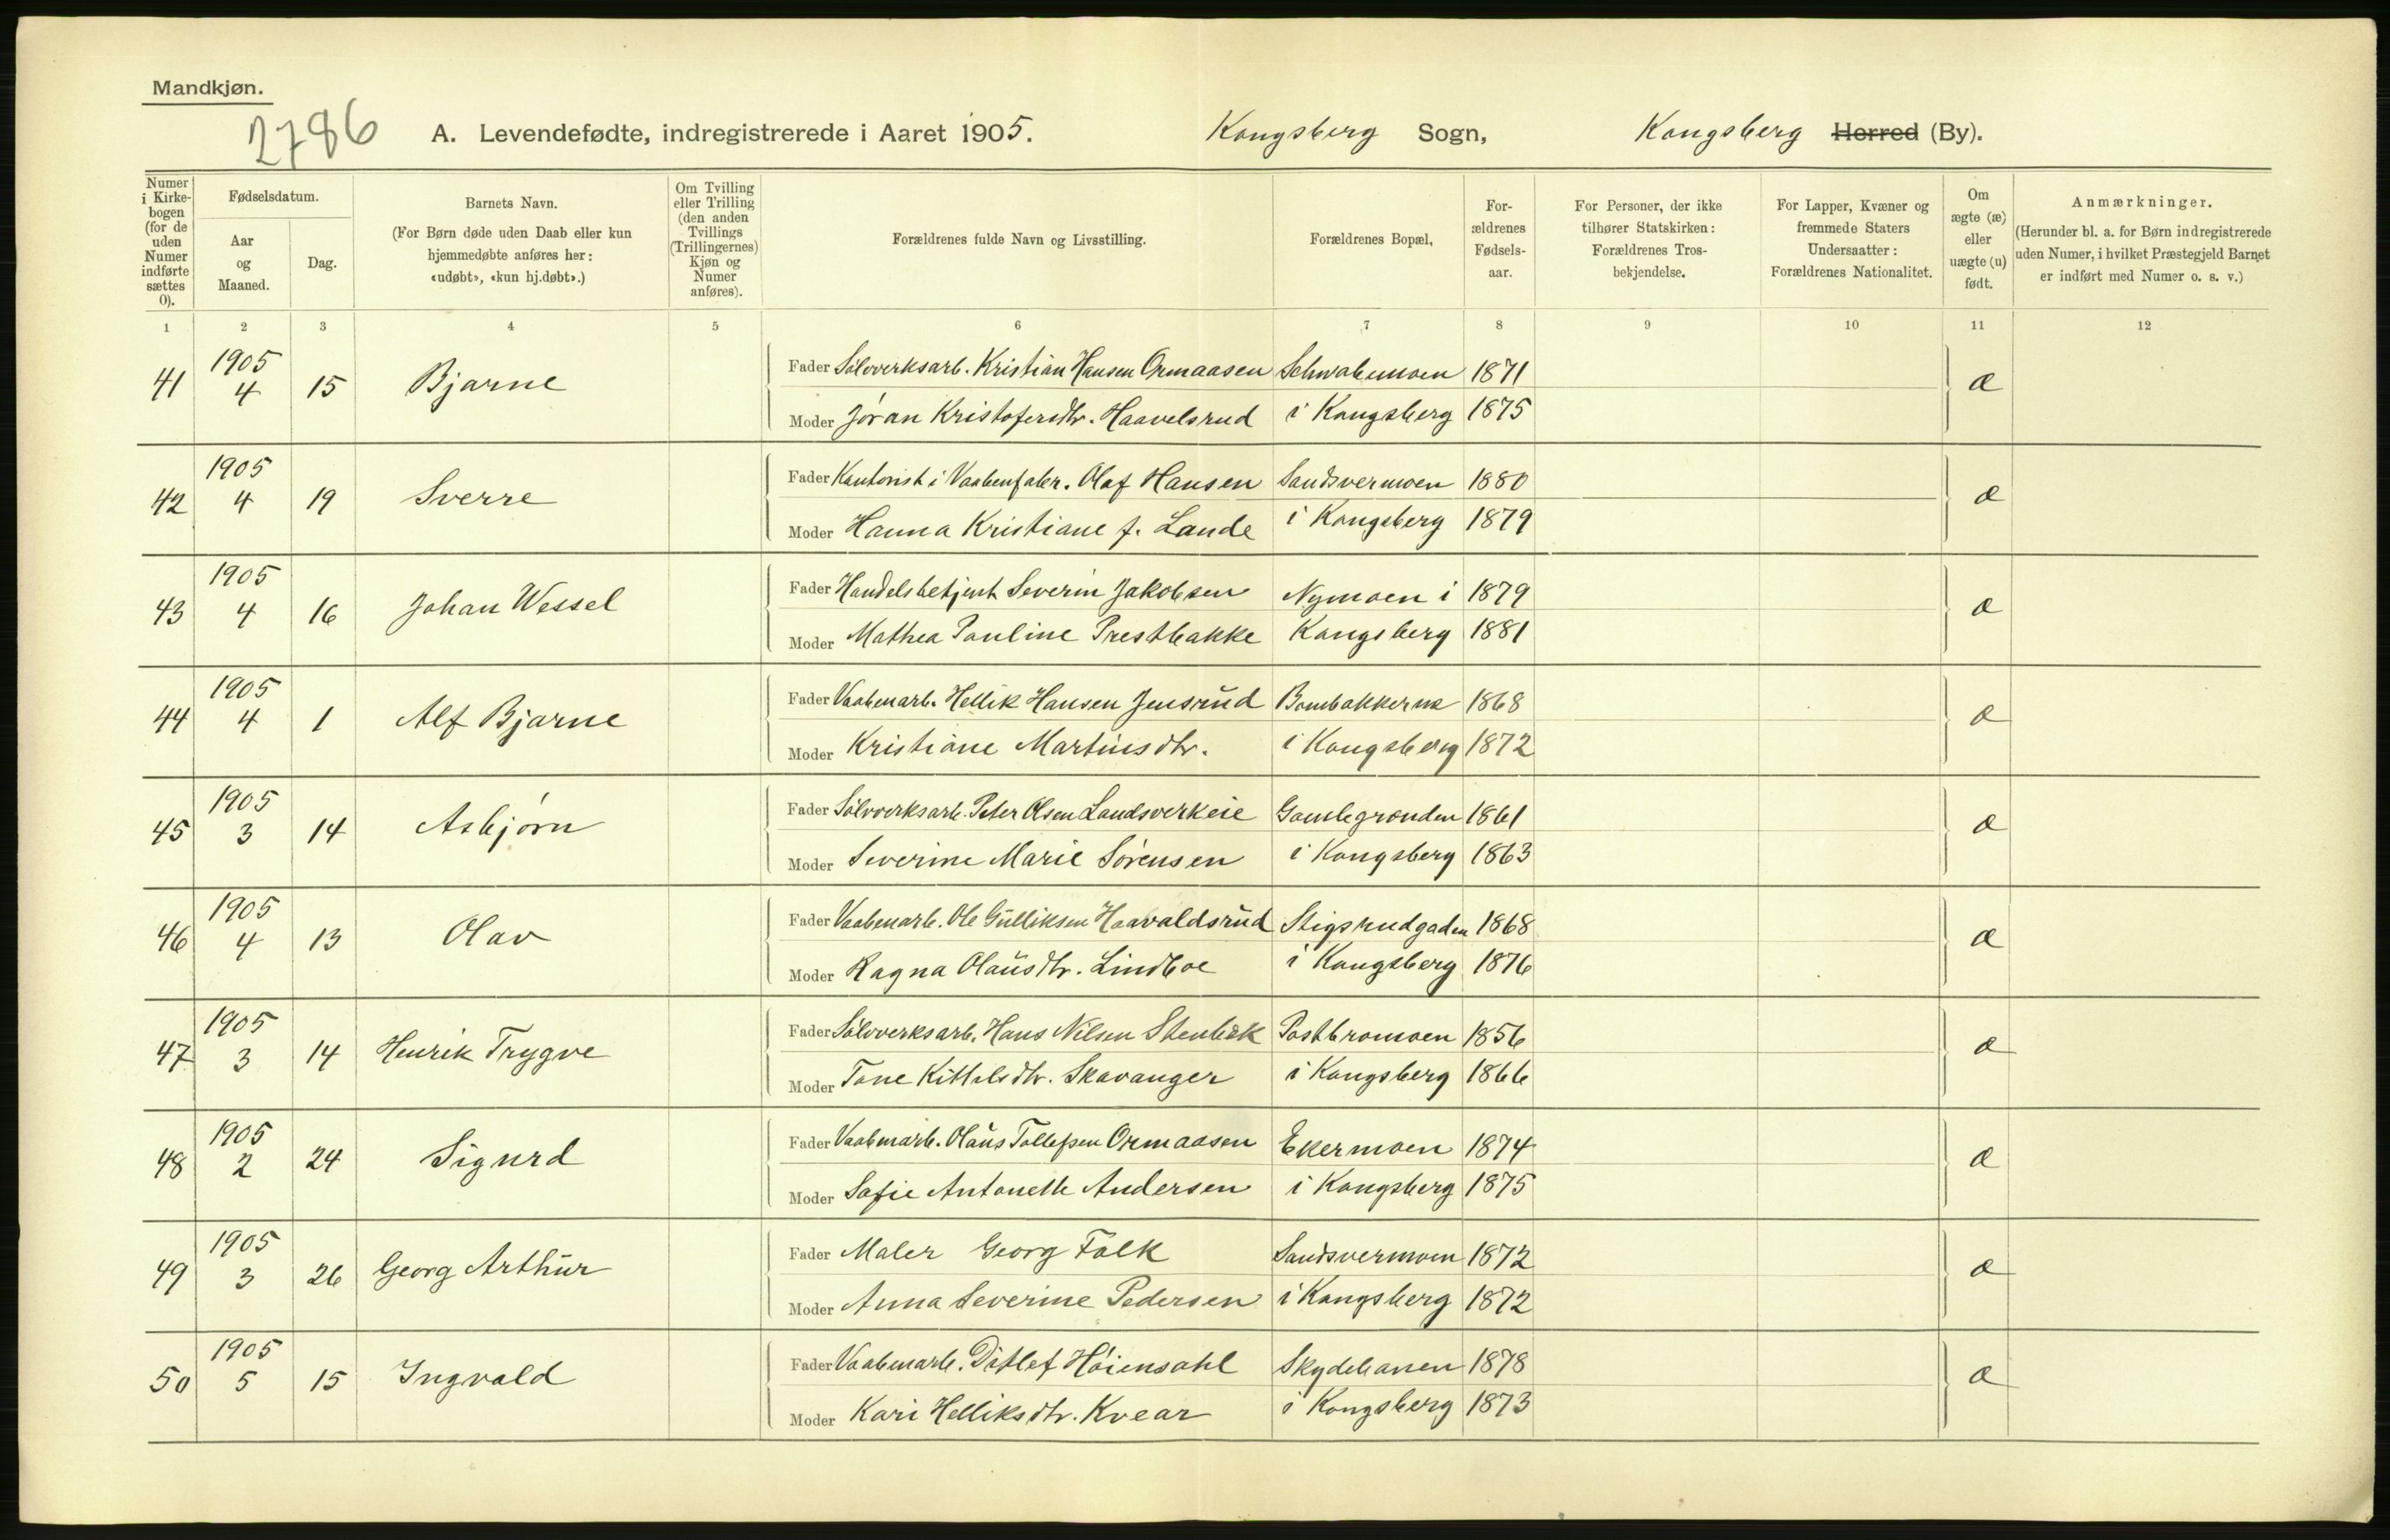 Mandkjøn.
2786
A. Levendefødte, indregistrerede i Aaret 1905. Kongsberg Sogn, Kongsberg Herred (By).
Numer i Kirkebogen (for de uden Numer indførte sættes 0).
Fødselsdatum.
Aar og Maaned.
Dag.
Barnets Navn.
(For Børn døde uden Daab eller kun hjemmedøbte anføres her: «udøbt», «kun hj.døbt».)
Om Tvilling eller Trilling (den anden Tvillings (Trillingernes) Kjøn og Numer anføres).
Forældrenes fulde Navn og Livsstilling.
Forældrenes Bopæl,
Forældrenes Fødselsaar.
For Personer, der ikke tilhører Statskirken: Forældrenes Trosbekjendelse.
For Lapper, Kvæner og fremmede Staters Undersaatter: Forældrenes Nationalitet.
Om ægte (æ) eller uægte (u) født.
Anmærkninger.
(Herunder bl. a. for Børn indregistrerede uden Numer, i hvilket Præstegjeld Barnet er indført med Numer o. s. v.)
1 2 3 4 5 6 7 8 9 10 11 12
41 1905 4 15 Bjarne Fader Sølvverksarb. Kristian Hansen Ormaasen Schwabemoen 1871 æ
Moder Jøran Kristofersdtr. Haavelsrud i Kongsberg 1875
42 1905 4 19 Sverre Fader Kontorist i Vaabenfabr. Olaf Hansen Sandsvermoen 1880 æ
Moder Hanna Kristiane f. Lande i Kongsberg 1879
43 1905 4 16 Johan Wessel Fader Handelsbetjent Severin Jakobsen Nymoen i 1879 æ
Moder Mathea Pauline Prestbakke Kongsberg 1881
44 1905 4 1 Alf Bjarne Fader Vaabenarb. Hellik Hansen Jensrud Bombakkerne 1868 æ
Moder Kristiane Martinsdtr. i Kongsberg 1872
45 1905 3 14 Asbjørn Fader Sølvverksarb. Peter Olsen Landsverkeie Gamlegrenden 1861 æ
Moder Severine Marie Sørensen i Kongsberg 1863
46 1905 4 13 Olav Fader Vaabenarb. Ole Gulliksen Haavaldsrud Stigsrudgaden 1868 æ
Moder Ragna Olausdtr. Lindboe i Kongsberg 1876
47 1905 3 14 Henrik Trygve Fader Sølvverksarb. Hans Nilsen Stenbæk Postbromoen 1856 æ
Moder Tone Kittelsdtr. Skavanger i Kongsberg 1866
48 1905 2 24 Sigurd Fader Vaabenarb. Olaus Tollefsen Ormaasen Ekermoen 1874 æ
Moder Sofie Antonette Andersen i Kongsberg 1875
49 1905 3 26 Georg Arthur Fader Maler Georg Falk Sandsvermoen 1872 æ
Moder Anna Severine Pedersen i Kongsberg 1872
50 1905 5 15 Ingvald Fader Vaabenarb. Ditlef Høiensahl Skydebanen 1878 æ
Moder Kari Helliksdtr. Kvear i Kongsberg 1873